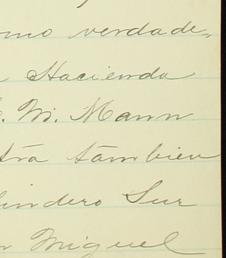 omo verdade-
a Hacienda
C. M. Mann
stra tambien
lindero Sur
n Miguel